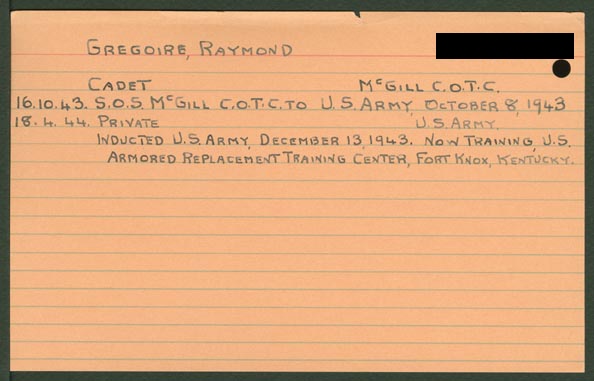 GREGOIRE, RAYMOND
CADET McGILL C.O.T.C.
16.10.43. S.O.S. McGILL C.O.T.C. TO U.S. ARMY, OCTOBER 8, 1943
18.4.44. PRIVATE U.S. ARMY.
INDUCTED U.S. ARMY, DECEMBER 13, 1943. NOW TRAINING, U.S.
ARMORED REPLACEMENT TRAINING CENTER, FORT KNOX, KENTUCKY.